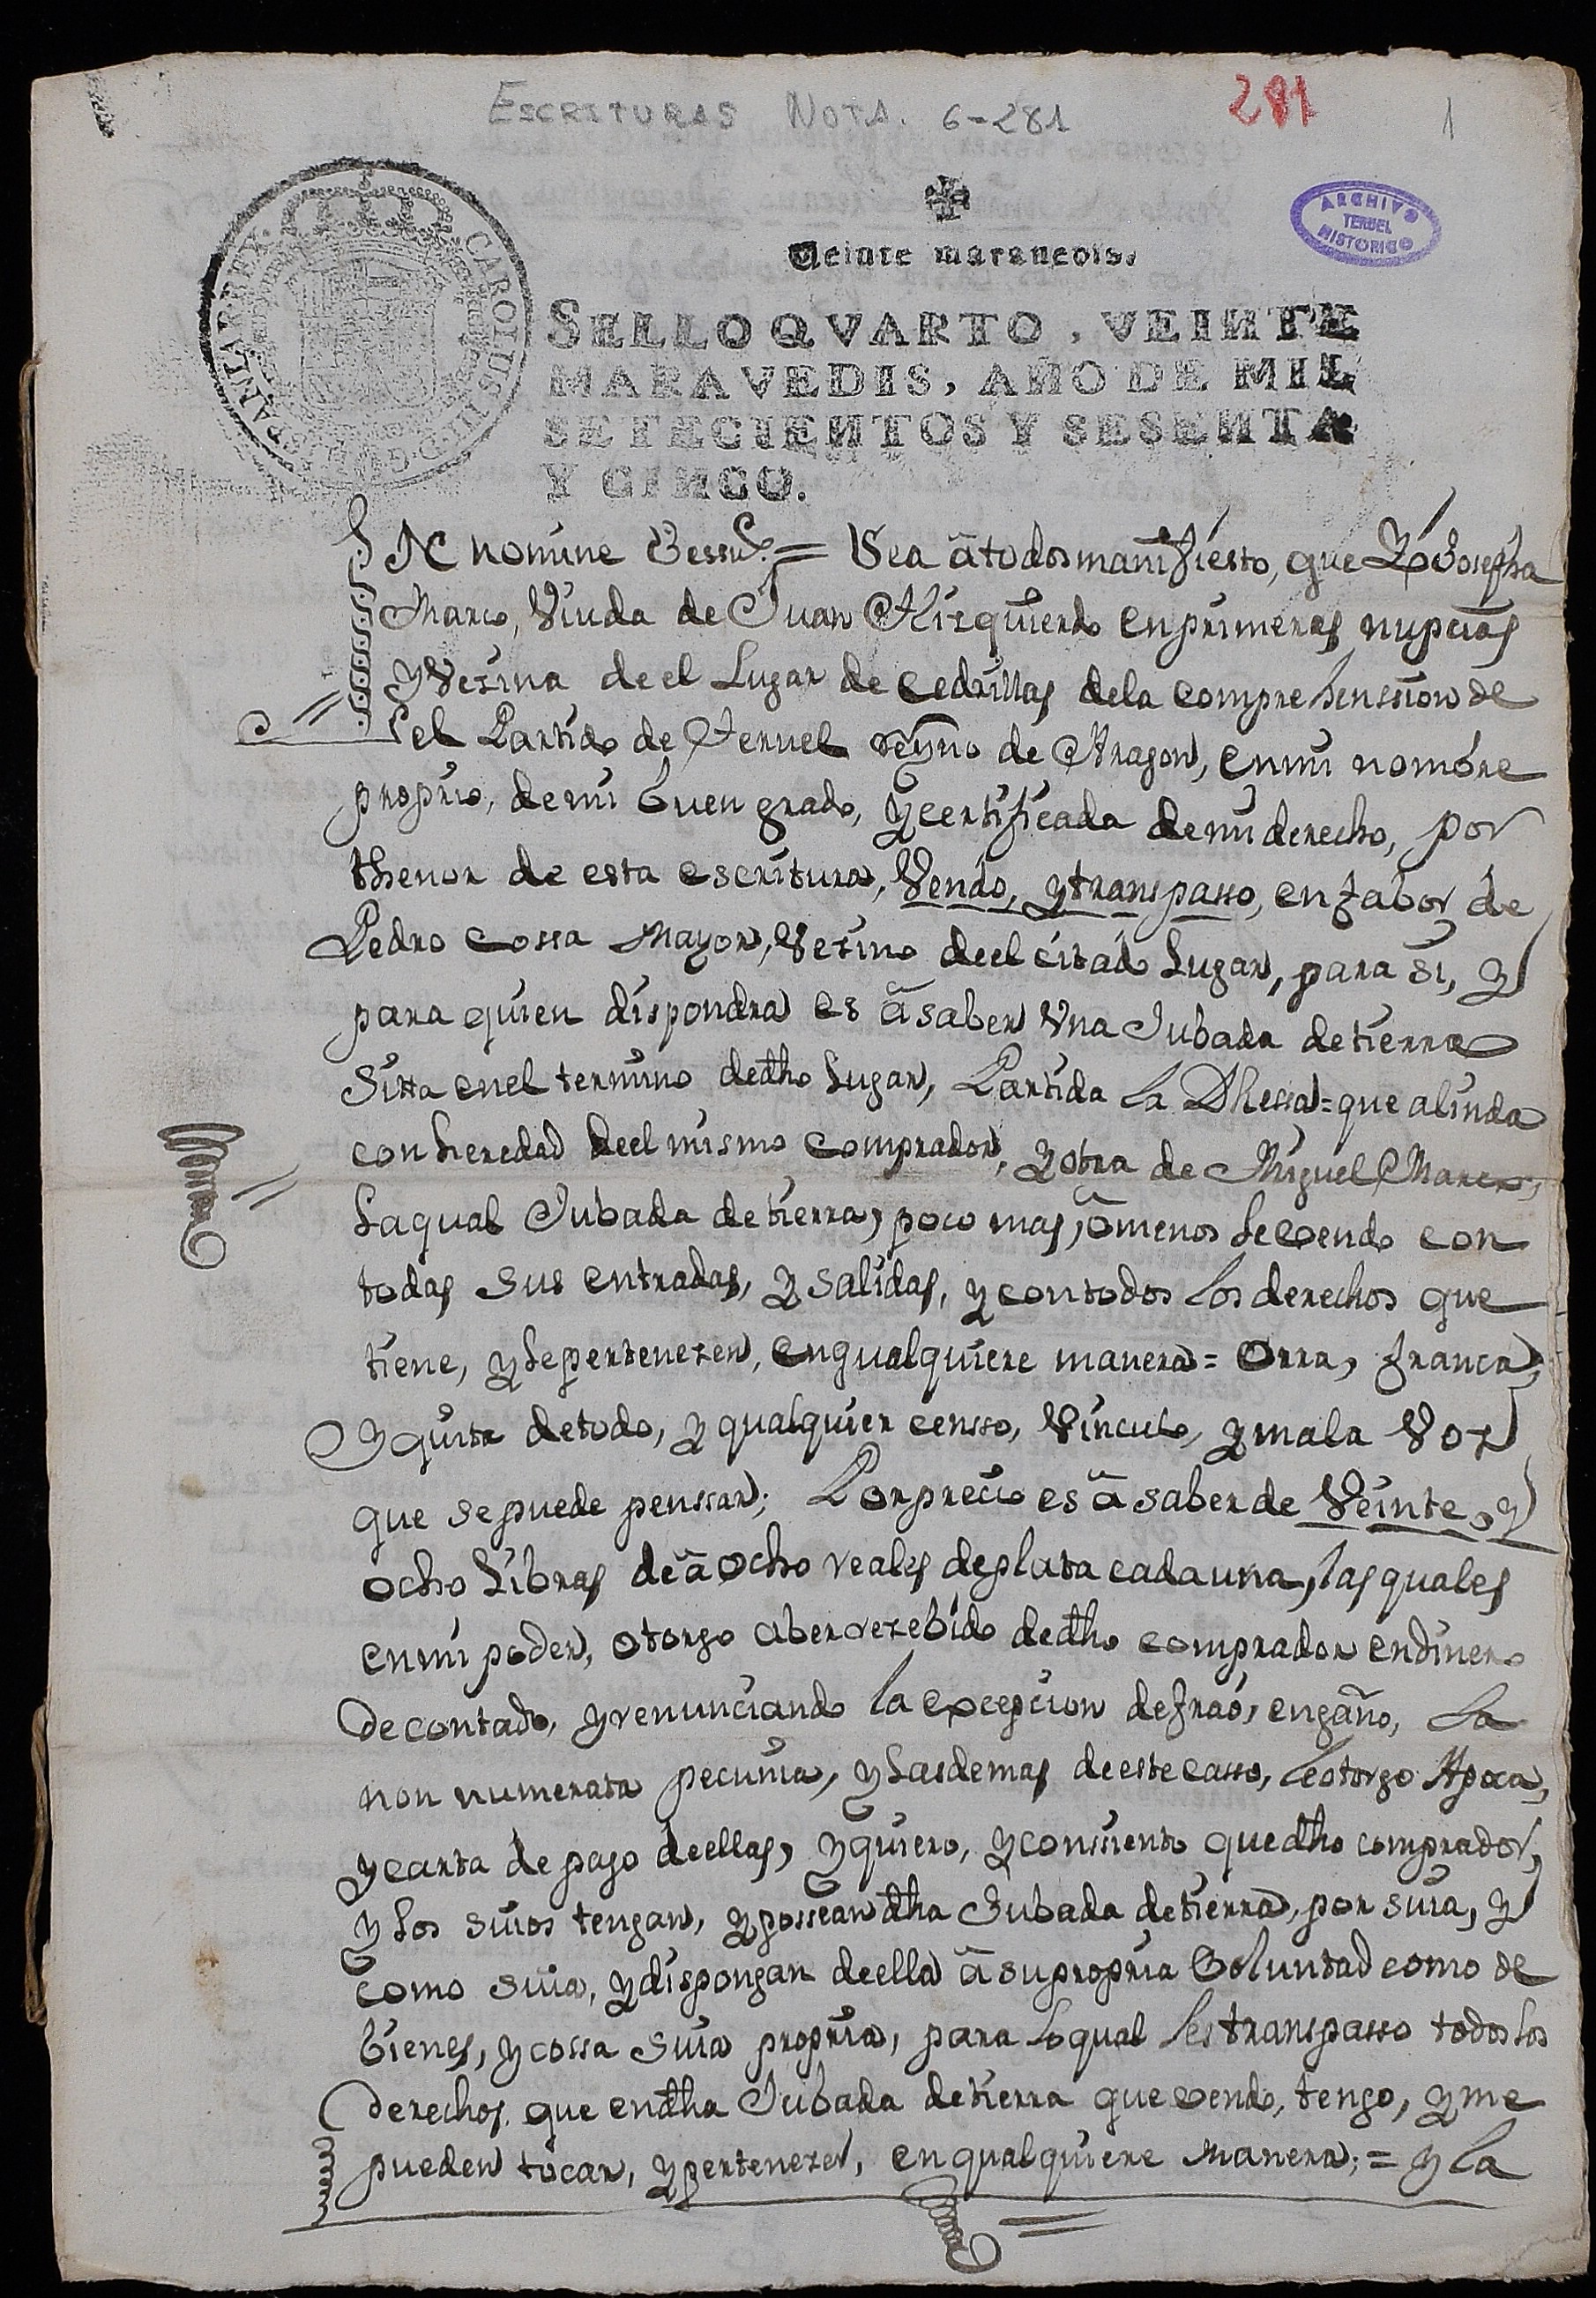 ESCRITURAS NOTA. 6-281
281
1
ARCHIVO
TERUEL
HISTORICO
Veinte maravedis.
CAROLUS III D G HISPANIAR REX
SELLO QVARTO, VEINTE
MARAVEDIS, AÑO DE MIL
SETECIENTOS Y SESENTA
Y CINCO.
IN nomine = Sea â todos manifiesto, que Yó Josepha
Marco, Viuda de Juan Yizquierdo en primeras nupcias
y Vezina de el Lugar de Cedrillas de la comprehenssion de
el Partido de Teruel Reyno de Aragon, en mi nombre
proprio, de mi buen grado, y certificada de mi derecho, por
thenor de esta escritura, Vendo, y transpasso, en fabor de
Pedro Cossa Mayor, Vezino de el citado Lugar, para si, y
para quien dispondra es â saber Vna Jubada de tierra
Sitta en el termino de dho Lugar, Partida la Dhessa = que alinda
con heredad de el mismo comprador, y otra de Miguel Marco,
La qual Jubada de tierra, poco mas, ô menos le vendo con
todas sus entradas, y salidas, y con todos los derechos que
tiene, y le pertenezen, en qualquiere manera = Orra, franca,
y quita de todo, y qualquier censso, Vinculo, y mala Voz
que se puede penssar; Por precio es â saber de Veinte, y
ocho Libras de â ocho reales de plata cada una, las quales
en mi poder, otorgo aber rezebido de dho comprador en dinero
de contado, y renunciando la excepcion de frao, engaño, la
non numerata pecunia, y las demas de este casso, le otorgo Apoca,
y carta de pago de ellas, y quiero, y consiento que dho comprador,
y los suios tengan, y posseân dha Jubada de tierra, por suia, y
como suia, y dispongan de ella â su propria Voluntad como de
bienes, y cossa suia propria, para lo qual les transpasso todos los
derechos que en dha Jubada de tierra que vendo, tengo, y me
pueden tocar, y pertenezer, en qualquiere manera; = y la